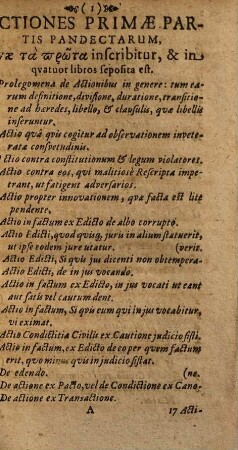 (1)
CTIONES PRIMÆ PAR-
TIS PANDECTARUM,
væ τὰ πρῶτα inscribitur, & in
qvatuor libros seposita est.
Prolegomena de Actionibus in genere: tum ear
um definitione, divisione, duratione, transitio
ne ad hæredes, libello, & clausulis, quæ libellis
inseruntur.
Actio quâ quis cogitur ad observationem invete
ratæ consvetudinis.
Actio contra constitutionum & legum violatores.
Actio contra eos, qui malitiosè Rescripta impe
trant, ut fatigent adversarios.
Actio propter innovationem, quæ facta est lite
pendente.
Actio in factum ex Edicto de albo corrupto.
Actio Edicti, quod quisq; juris in alium statuerit,
ut ipse eodem jure utatur. (verit.
Actio Edicti, Si quis jus dicenti non obtempera-
Actio Edicti, de in jus vocando.
Actio in factum ex Edicto, in jus vocati ut eant
aut satis vel cautum dent.
Actio in factum, Si quis eum qui in jus vocabitur,
vi eximat.
Actio Condictitia Civilis ex Cautione judicio sisti.
Actio in factum, ex Edicto de eo per quem factum
erit, quo minus quis in judicio sistat.
De edendo. (ne.
De actione ex Pacto, vel de Condictione ex Cano-
De actione ex Transactione.
A 17 Acti-